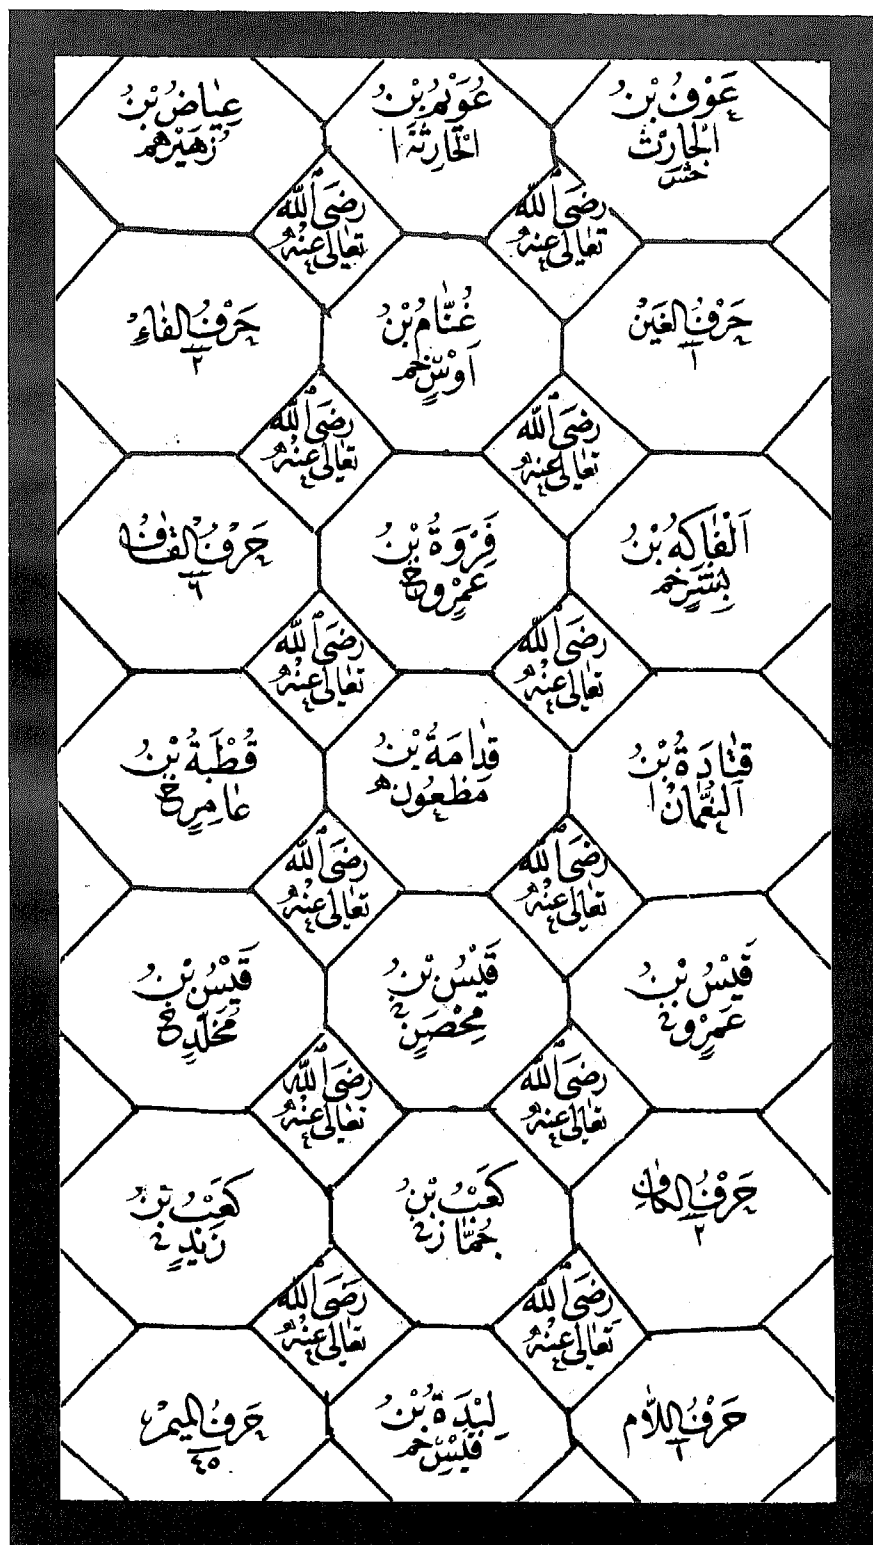 عَوْفُ بْنُ
الْحَارِثِ
عُوَيْمُ بْنُ
الْحَارِثَةِ ا
عِيَاضُ بْنُ
زُهَيْرٍ
رَضِيَ اللّٰه
تَعَالٰى عَنْهُ
رَضِيَ اللّٰه
تَعَالٰى عَنْهُ
حَرْفُ الْغَيْن
١
غُنَّامُ بْنُ
اَوْسٍ
حَرْفُ الْفَاءِ
٢
رَضِيَ اللّٰه
تَعَالٰى عَنْهُ
رَضِيَ اللّٰه
تَعَالٰى عَنْهُ
اَلْفَاكِهُ بْنُ
بِشْرٍ
فَرْوَةُ بْنُ
عَمْرٍو
حَرْفُ الْقَافِ
٦
رَضِيَ اللّٰه
تَعَالٰى عَنْهُ
رَضِيَ اللّٰه
تَعَالٰى عَنْهُ
قَتَادَةُ بْنُ
النُّعْمَانِ ا
قُدَامَةُ بْنُ
مَظْعُونٍ
قُطْبَةُ بْنُ
عَامِرٍ
رَضِيَ اللّٰه
تَعَالٰى عَنْهُ
رَضِيَ اللّٰه
تَعَالٰى عَنْهُ
قَيْسُ بْنُ
عَمْرٍو
قَيْسُ بْنُ
مِحْصَنٍ
قَيْسُ بْنُ
مُخَلَّدٍ
رَضِيَ اللّٰه
تَعَالٰى عَنْهُ
رَضِيَ اللّٰه
تَعَالٰى عَنْهُ
حَرْفُ الْكَافِ
٢
كَعْبُ بْنُ
جُمَّازٍ
كَعْبُ بْنُ
زَيْدٍ
رَضِيَ اللّٰه
تَعَالٰى عَنْهُ
رَضِيَ اللّٰه
تَعَالٰى عَنْهُ
حَرْفُ اللَّام
١
لِبْدَةُ بْنُ
قَيْسٍ
حَرْفُ الْمِيْم
٤٥